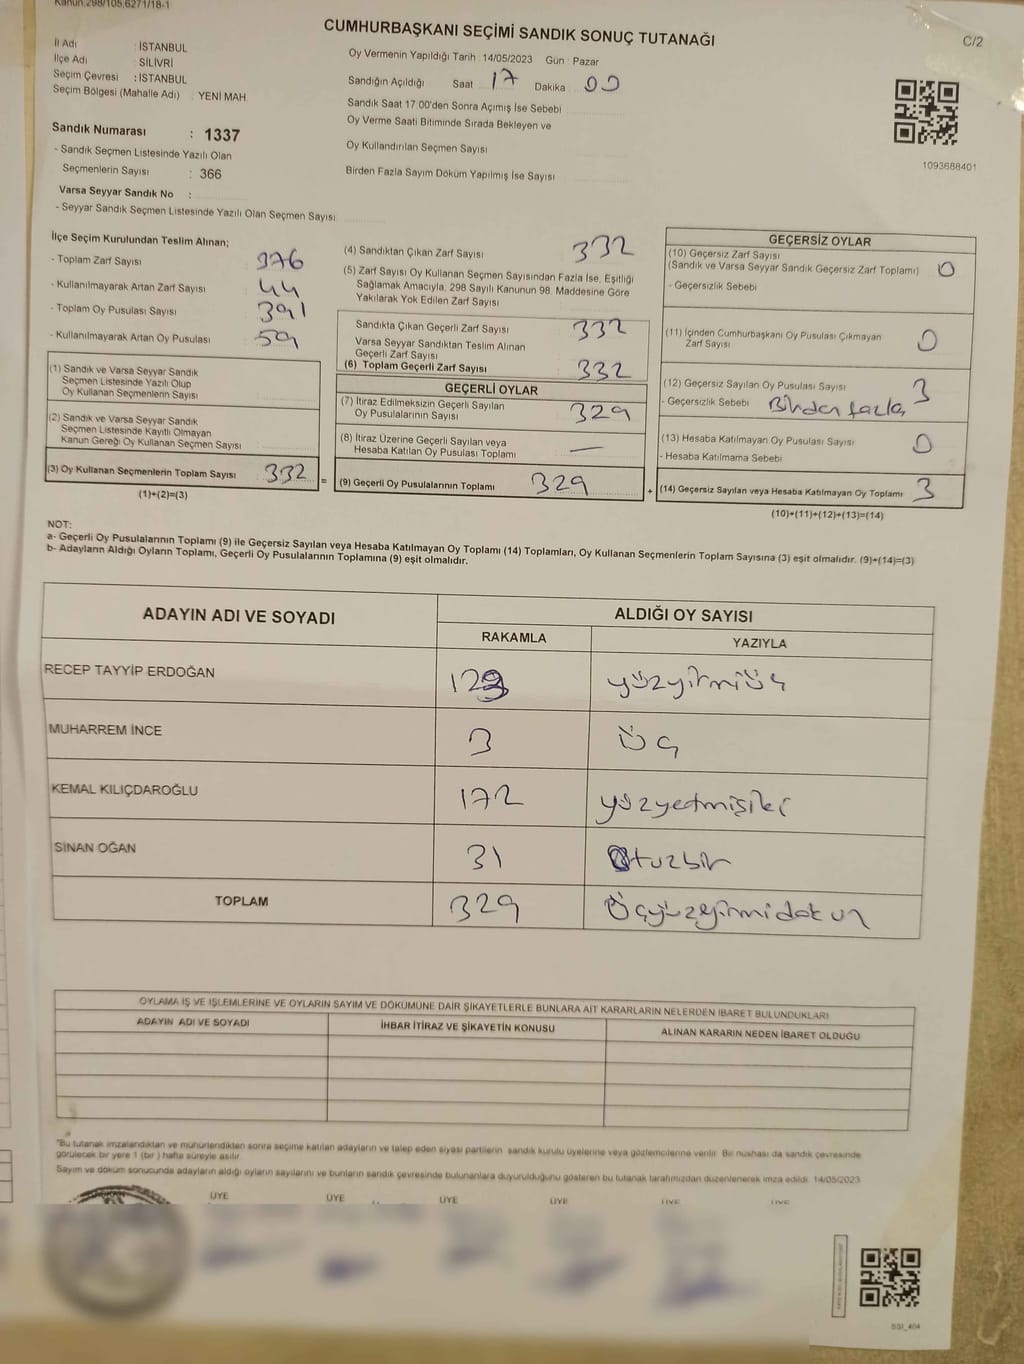 Kanun:298/105,6271/18-1
CUMHURBAŞKANI SEÇİMİ SANDIK SONUÇ TUTANAĞI
C/2
İl Adı : İSTANBUL
İlçe Adı : SİLİVRİ
Seçim Çevresi : İSTANBUL
Seçim Bölgesi (Mahalle Adı) : YENİ MAH.
Oy Vermenin Yapıldığı Tarih : 14/05/2023 Gün : Pazar
Sandığın Açıldığı Saat 17 Dakika 00
Sandık Saat 17:00'den Sonra Açımış İse Sebebi
Oy Verme Saati Bitiminde Sırada Bekleyen ve
Oy Kullandırılan Seçmen Sayısı
Birden Fazla Sayım Döküm Yapılmış İse Sayısı
1093688401
Sandık Numarası : 1337
- Sandık Seçmen Listesinde Yazılı Olan
Seçmenlerin Sayısı : 366
Varsa Seyyar Sandık No :
- Seyyar Sandık Seçmen Listesinde Yazılı Olan Seçmen Sayısı
İlçe Seçim Kurulundan Teslim Alınan;
- Toplam Zarf Sayısı 376
- Kullanılmayarak Artan Zarf Sayısı 44
- Toplam Oy Pusulası Sayısı 391
- Kullanılmayarak Artan Oy Pusulası 59
(1) Sandık ve Varsa Seyyar Sandık
Seçmen Listesinde Yazılı Olup
Oy Kullanan Seçmenlerin Sayısı
(2) Sandık ve Varsa Seyyar Sandık
Seçmen Listesinde Kayıtlı Olmayan
Kanun Gereği Oy Kullanan Seçmen Sayısı
(3) Oy Kullanan Seçmenlerin Toplam Sayısı 332 =
(1)+(2)=(3)
(4) Sandıktan Çıkan Zarf Sayısı 332
(5) Zarf Sayısı Oy Kullanan Seçmen Sayısından Fazla İse, Eşitliği
Sağlamak Amacıyla, 298 Sayılı Kanunun 98. Maddesine Göre
Yakılarak Yok Edilen Zarf Sayısı
Sandıkta Çıkan Geçerli Zarf Sayısı 332
Varsa Seyyar Sandıktan Teslim Alınan
Geçerli Zarf Sayısı
(6) Toplam Geçerli Zarf Sayısı 332
GEÇERLİ OYLAR
(7) İtiraz Edilmeksizin Geçerli Sayılan
Oy Pusulalarının Sayısı 329
(8) İtiraz Üzerine Geçerli Sayılan veya
Hesaba Katılan Oy Pusulası Toplamı —
(9) Geçerli Oy Pusulalarının Toplamı 329 +
GEÇERSİZ OYLAR
(10) Geçersiz Zarf Sayısı
(Sandık ve Varsa Seyyar Sandık Geçersiz Zarf Toplamı) 0
- Geçersizlik Sebebi
(11) İçinden Cumhurbaşkanı Oy Pusulası Çıkmayan
Zarf Sayısı 0
(12) Geçersiz Sayılan Oy Pusulası Sayısı 3
- Geçersizlik Sebebi Birden fazla
(13) Hesaba Katılmayan Oy Pusulası Sayısı 0
- Hesaba Katılmama Sebebi
(14) Geçersiz Sayılan veya Hesaba Katılmayan Oy Toplamı 3
(10)+(11)+(12)+(13)=(14)
NOT:
a- Geçerli Oy Pusulalarının Toplamı (9) ile Geçersiz Sayılan veya Hesaba Katılmayan Oy Toplamı (14) Toplamları, Oy Kullanan Seçmenlerin Toplam Sayısına (3) eşit olmalıdır. (9)+(14)=(3)
b- Adayların Aldığı Oyların Toplamı, Geçerli Oy Pusulalarının Toplamına (9) eşit olmalıdır.
ADAYIN ADI VE SOYADI
ALDIĞI OY SAYISI
RAKAMLA YAZIYLA
RECEP TAYYİP ERDOĞAN 123 yüzyirmiüç
MUHARREM İNCE 3 üç
KEMAL KILIÇDAROĞLU 172 yüzyetmişiki
SİNAN OĞAN 31 Otuzbir
TOPLAM 329 Üçyüzyirmidokuz
OYLAMA İŞ VE İŞLEMLERİNE VE OYLARIN SAYIM VE DÖKÜMÜNE DAİR ŞİKAYETLERLE BUNLARA AİT KARARLARIN NELERDEN İBARET BULUNDUKLARI
ADAYIN ADI VE SOYADI İHBAR İTİRAZ VE ŞİKAYETİN KONUSU ALINAN KARARIN NEDEN İBARET OLDUĞU
"Bu tutanak imzalandıktan ve mühürlendikten sonra seçime katılan adayların ve talep eden siyasi partilerin sandık kurulu üyelerine veya gözlemcilerine verilir. Bir nüshası da sandık çevresinde
görülecek bir yere 1 (bir) hafta süreyle asılır.
Sayım ve döküm sonucunda adayların aldığı oyların sayılarını ve bunların sandık çevresinde bulunanlara duyurulduğunu gösteren bu tutanak tarafımızdan düzenlenerek imza edildi. 14/05/2023
ÜYE ÜYE ÜYE ÜYE ÜYE ÜYE